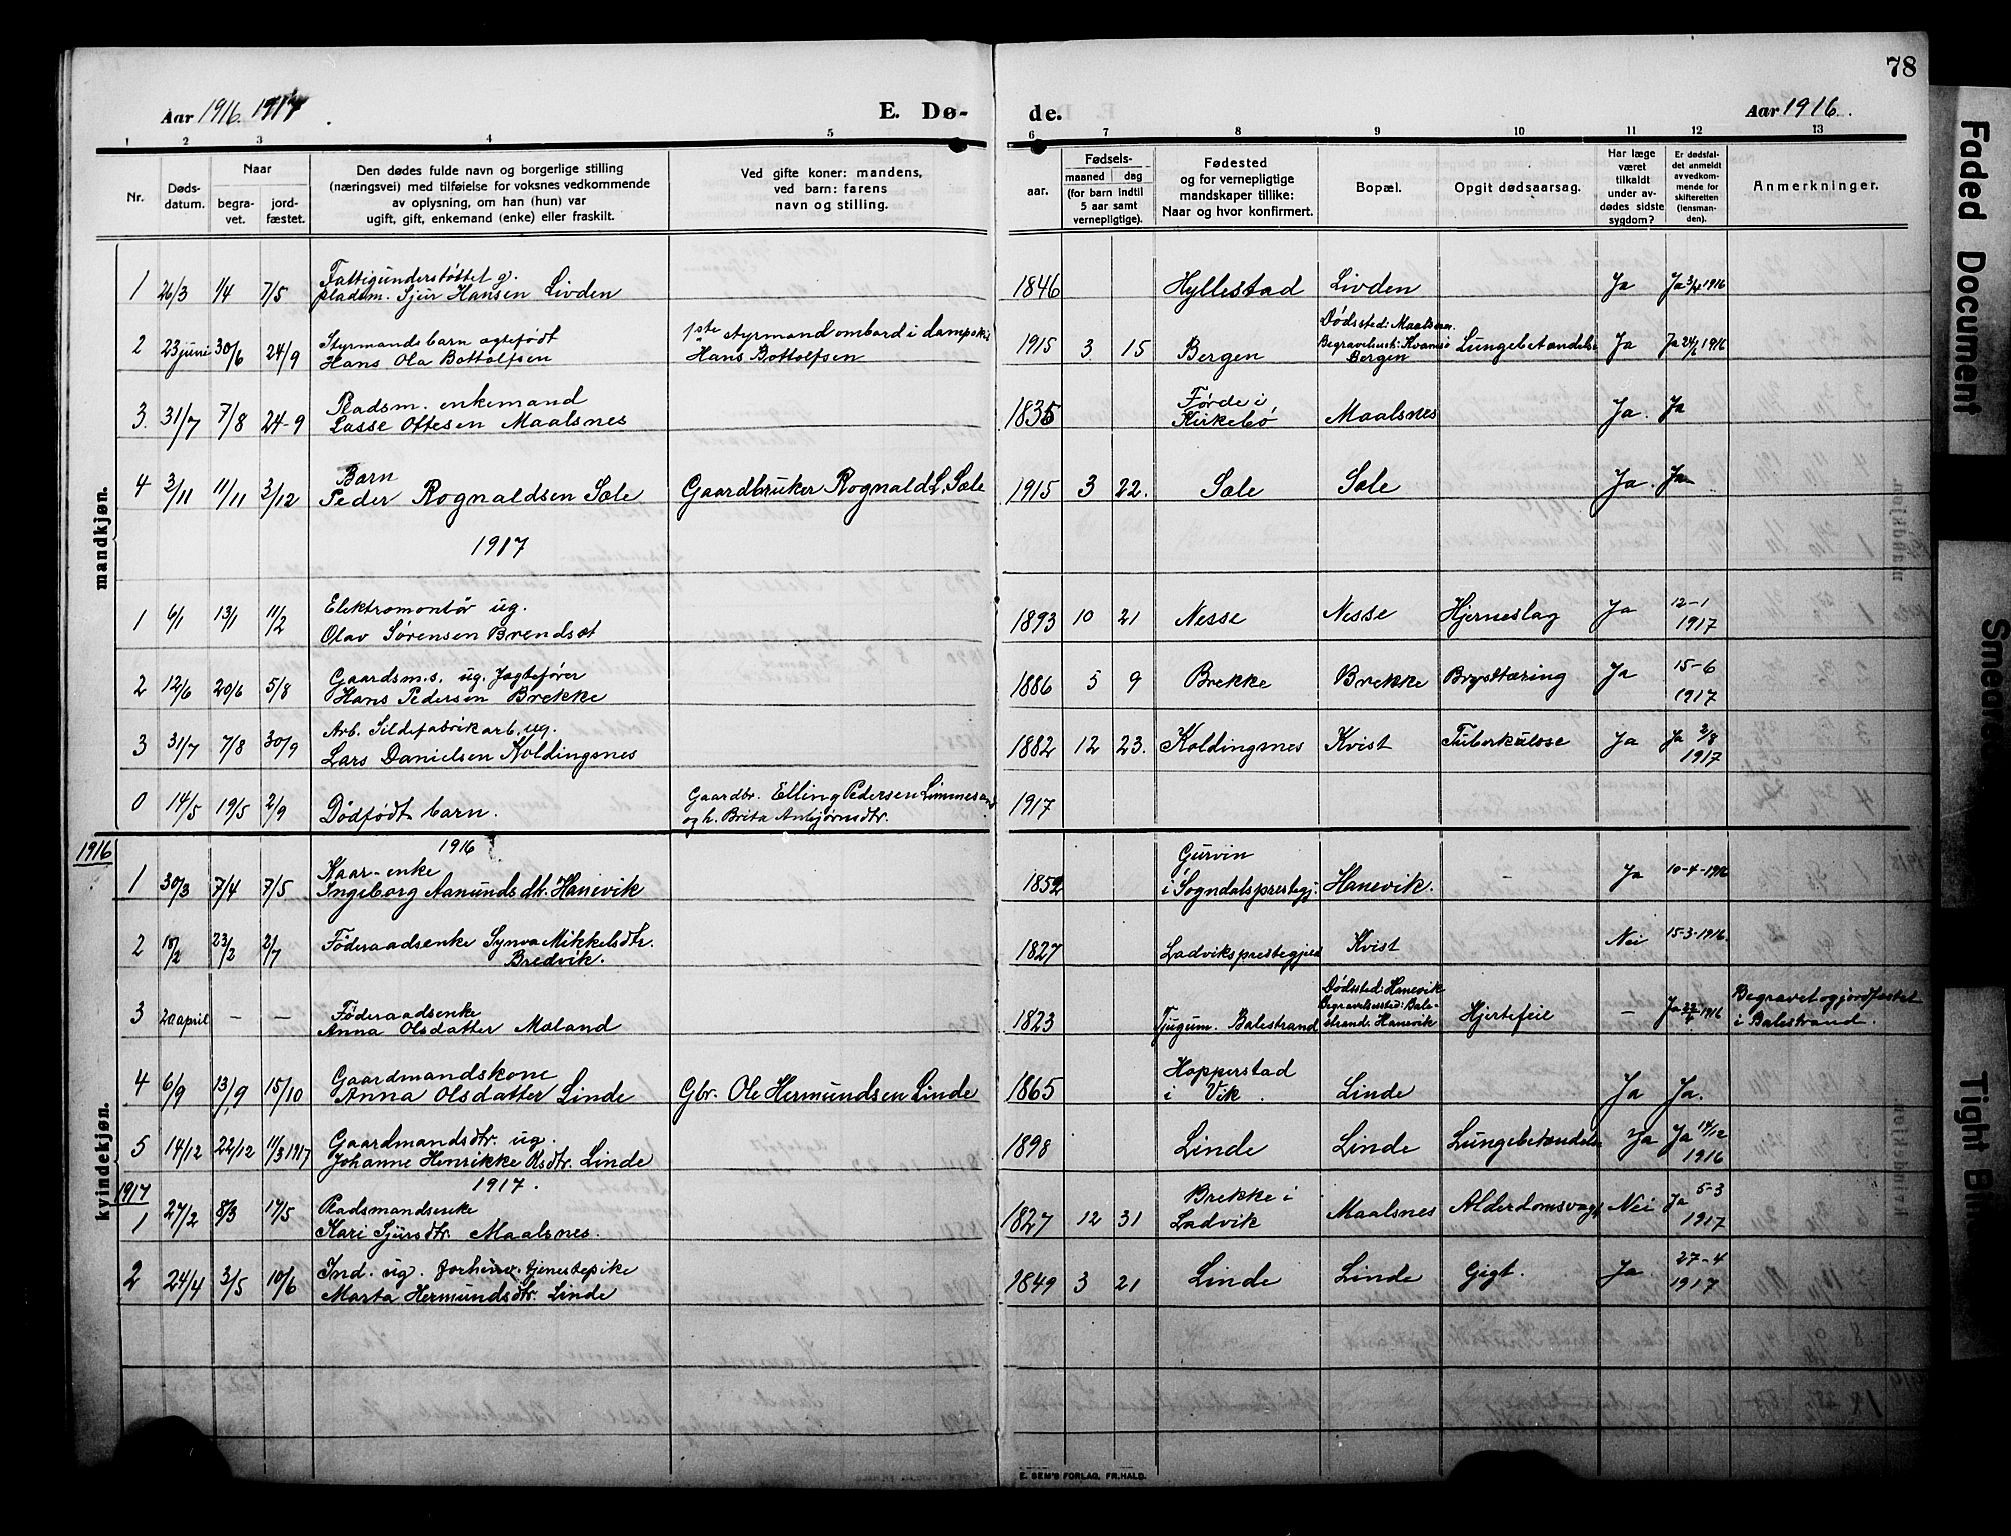 78
Aar 1916. 1917
E. Dø-
de.
Aar 1916.
1 2 3 4 5 6 7 8 9 10 11 12 13
Nr.
Døds-
datum.
Naar
begra-
vet.
jord-
fæstet.
Den dødes fulde navn og borgerlige stilling
(næringsvei) med tilføielse for voksnes vedkommende
av oplysning, om han (hun) var
ugift, gift, enkemand (enke) eller fraskilt.
Ved gifte koner: mandens,
ved barn: farens
navn og stilling.
aar.
Fødsels-
maaned dag
(for barn indtil
5 aar samt
vernepligtige).
Fødested
og for vernepligtige
mandskaper tillike:
Naar og hvor konfirmert.
Bopæl.
Opgit dødsaarsag.
Har læge
været
tilkaldt
under av-
dødes sidste
sygdom?
Er dødsfal-
det anmeldt
av vedkom-
mende for
skifteretten
(lensman-
den).
Anmerkninger.
mandkjøn.
Fattigunderstøttet g.
1 26/3 1/4 7/5 pladsm. Sjur Hansen Livden 1846 Hyllestad Livden Ja Ja 3/4 1916
Styrmandsbarn ægtefødt 1ste styrmand ombord i dampsk. Dødssted: Maalsnes.
2 23 juni 30/6 24/9 Hans Ola Bottolfsen Hans Bottolfsen 1915 3 15 Bergen Begravelsesst: Kvamsø Lungebetændelse Ja Ja 24/6 1916
Bergen
Pladsm. enkemand Førde i
3. 31/7 7/8 24-9 Lasse Ottesen Maalsnes 1835 Kirkebø Maalsnes Ja. Ja
Barn
4 3/11 11/11 3/12 Peder Rognaldsen Sæle Gaardbruker Rognald L. Sæle 1915 3 22. Sæle Sæle Ja. Ja
1917
Elektromontør ug. 12-1
1 6/1 13/1 11/2 Olav Sørensen Brendsæt 1893 10 21 Nesse Nesse Hjerneslag Ja 1917
Gaardsm.s. ug. Jagtefører 15-6
2 12/6 20/6 5/8 Hans Pedersen Brekke 1886 5 9 Brekke Brekke Brysttæring Ja 1917
Arb. Sildefabrikarb. ug.
3 31/7 7/8 30/9 Lars Danielsen Koldingsnes 1882 12 23. Koldingsnes Kvist Tuberkulose Ja Ja 3/8
1917
Gaardbr. Elling Pedersen Limmesand
0 14/5 19/5 2/9 Dødfødt barn. og h. Brita Anbjørnsdtr. 1917
kvindekjøn.
1916
1916
Kaar-enke Gurvin
1 30/3 7/4 7/5 Ingeborg Aamunds dtr. Hanevik 1852 i Sogndalsprestegj. Hanevik. - Ja 10-4-1916
2 18/2 23/2 2/7 Føderaadsenke Synva Mikkelsdtr. 1827 Ladviksprestegjeld Kvist Nei 15-3-1916.
Bredvik.
Føderaadsenke Dødssted: Hanevik
3 20 april - - Anna Olsdatter Mæland 1823 Tjugum. Balestrand Begravelsessted: Bale- Hjertefeil - Ja 22/4 1916 Begravet og jordfæstet
strand. Hanevik i Balestrand.
Gaardmandskone Hopperstad
4 6/9 13/9 15/10 Anna Olsdatter Linde Gbr. Ole Hermundsen Linde 1865 i Vik. Linde Ja Ja.
Gaardmandsdtr. ug.
5 14/12 22/12 11/3 1917 Johanne Henrikke Olsdtr. Linde 1898 Linde Linde Lungebetændelse Ja Ja 14/12
1916
1917
1917.
Pladsmandsenke Brekke i 5-3
1 27/2 8/3 17/5 Kari Sjursdtr. Maalsnes. 1827 12 31 Ladvik Maalsnes Alderdomsvagh Nei Ja 1917
Ind. ug. forhenv. tjenestepike 27-4
2 24/4 3/5 10/6 Marta Hermundsdtr. Linde 1849 3 21 Linde Linde Gigt. Ja 1917
E. SEM'S FORLAG, FR.HALD.
Faded Document
Smeared
Tight Bin